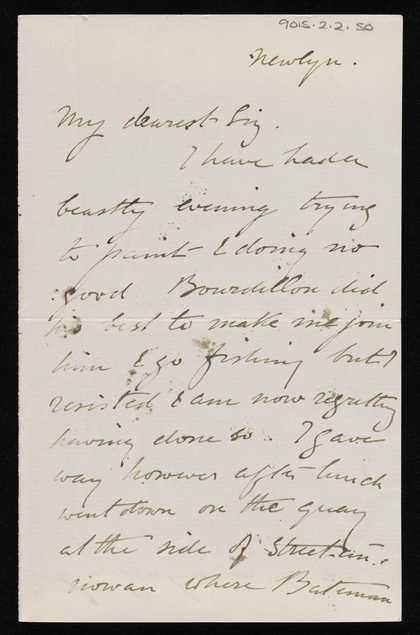 9015.2.2.50
Newlyn.
My dearest Liz.
I have had a
beastly evening trying
to paint & doing no
good Bourdillon did
his best to make me join
him & go fishing but I
resisted & am now regretting
having done so. I gave
way however after lunch
went down on the quay
at the side of Street-an-
nowan where Bateman